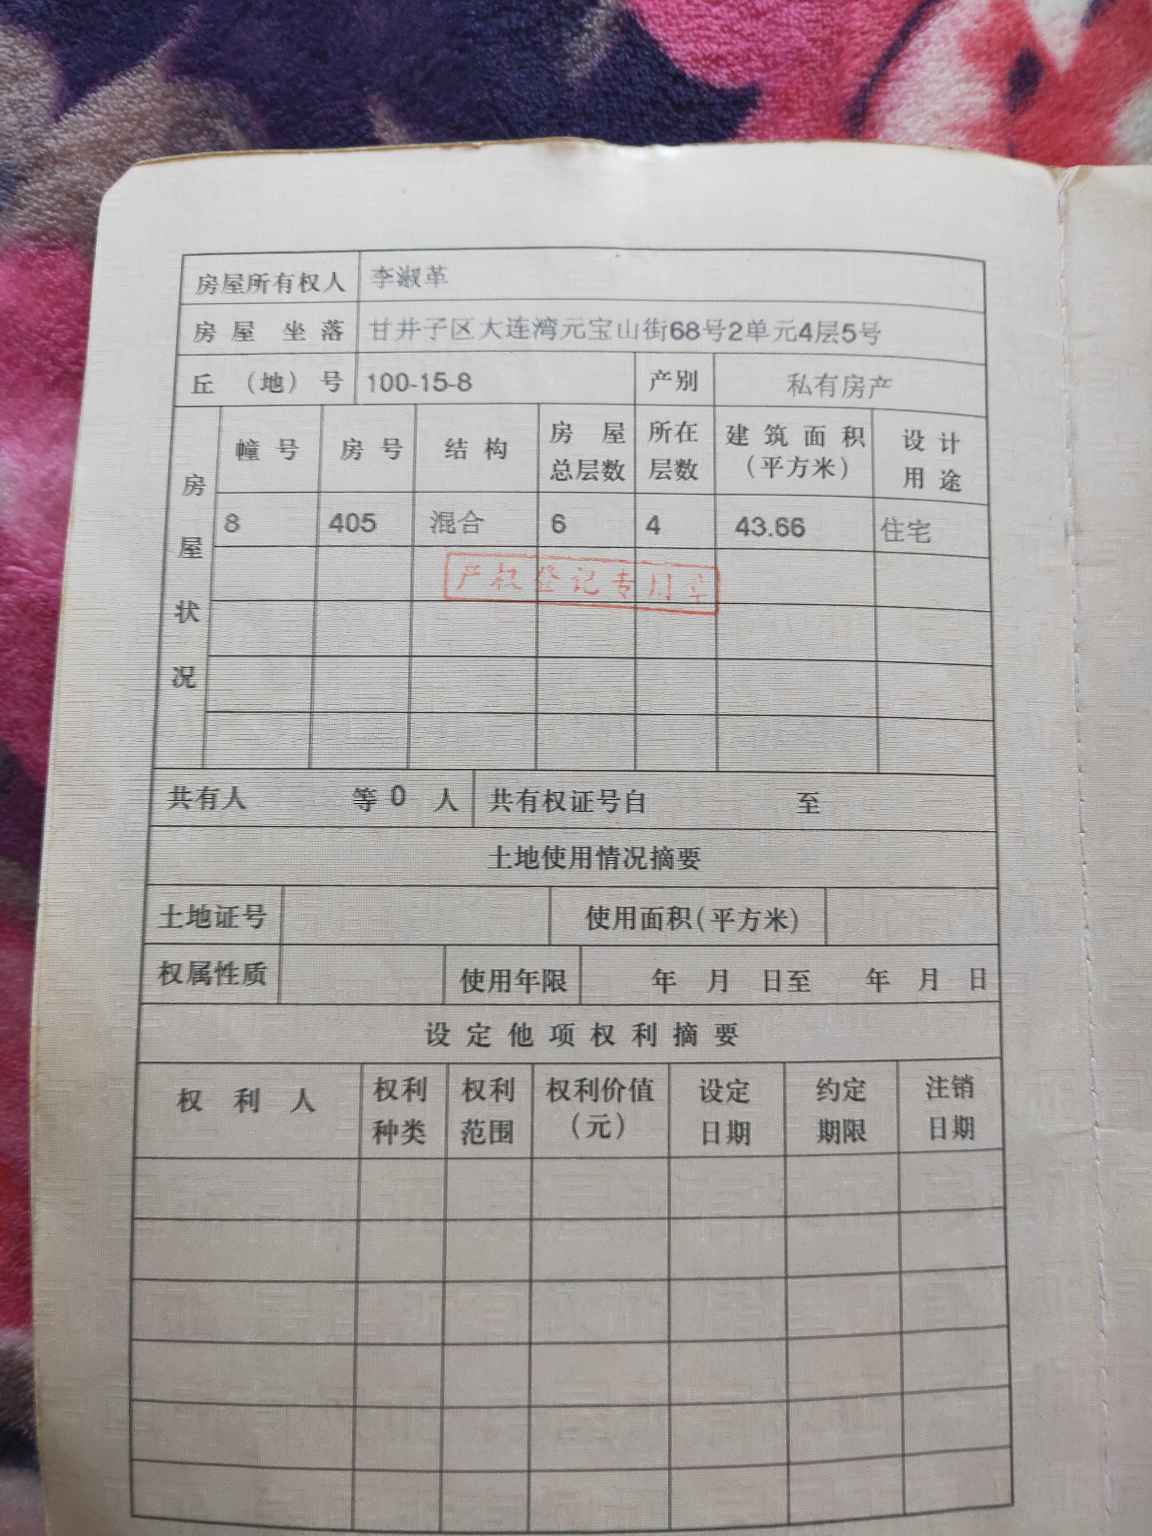 房屋所有权人 李淑革
房屋坐落 甘井子区大连湾元宝山街68号2单元4层5号
丘（地）号 100-15-8 产别 私有房产
房屋状况
幢号 房号 结构 房屋总层数 所在层数 建筑面积（平方米） 设计用途
8 405 混合 6 4 43.66 住宅
产权登记专用章
共有人 等0人 共有权证号自 至
土地使用情况摘要
土地证号 使用面积(平方米)
权属性质 使用年限 年 月 日至 年 月 日
设定他项权利摘要
权利人 权利种类 权利范围 权利价值（元） 设定日期 约定期限 注销日期